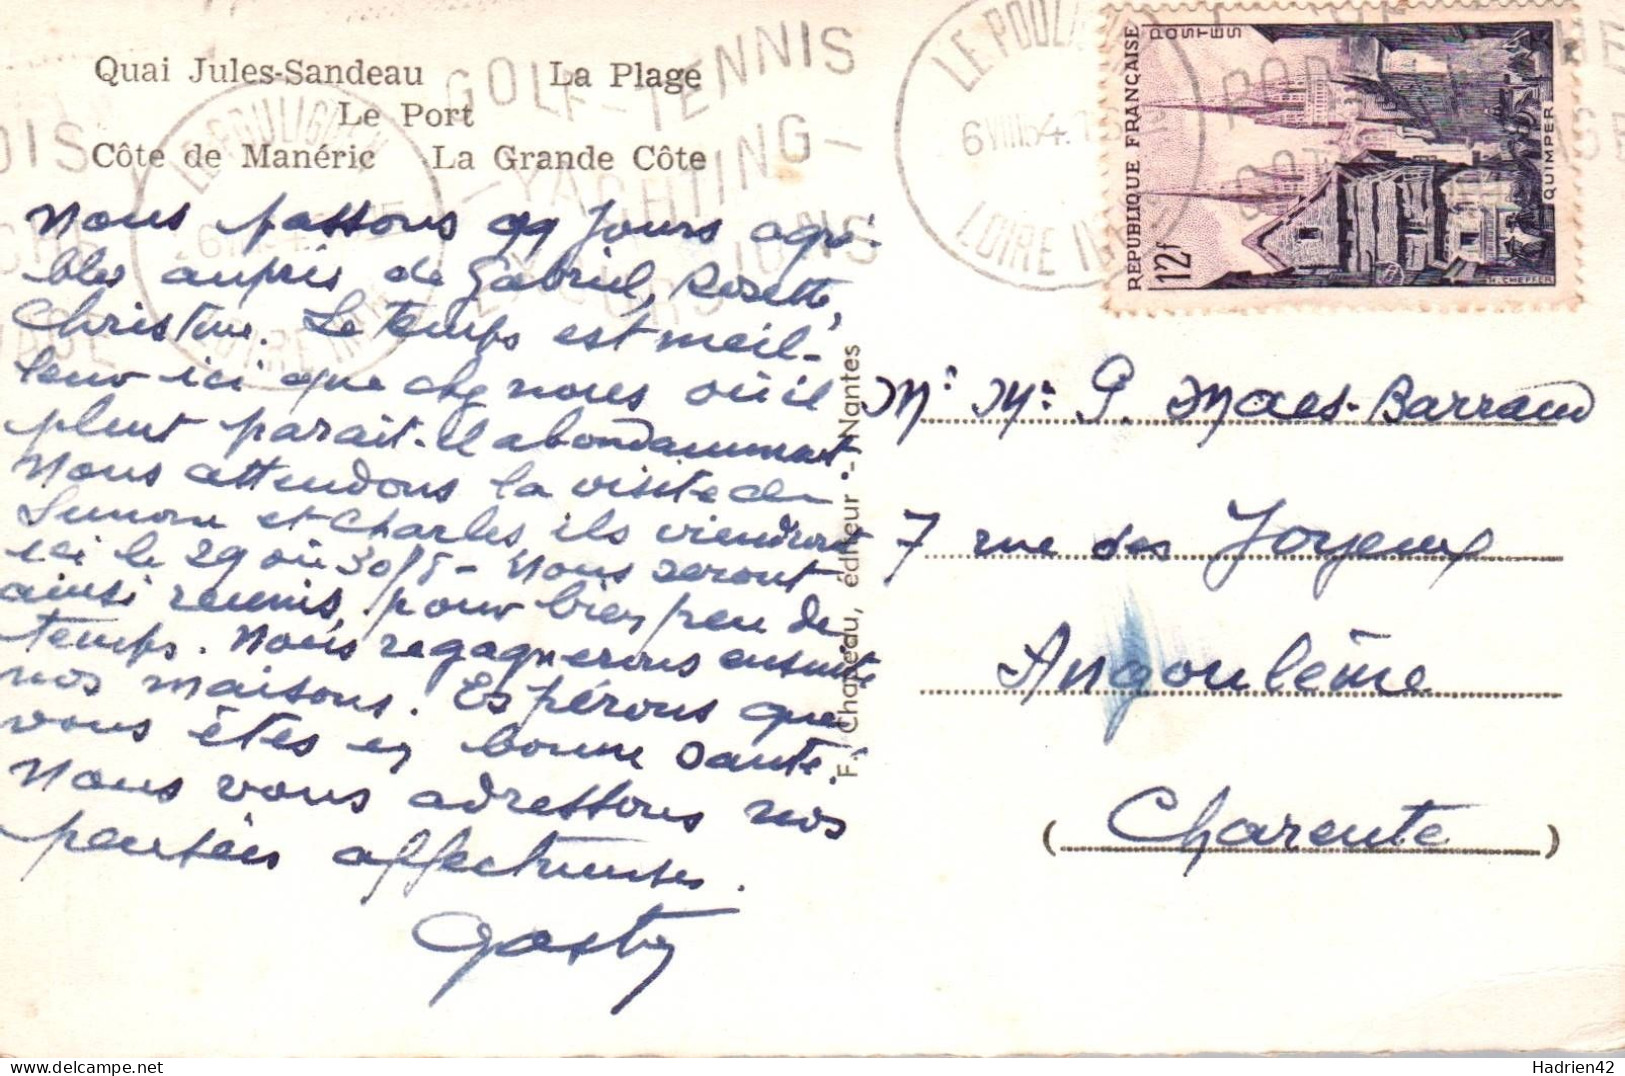 Quai Jules-Sandeau La Plage
Le Port
Côte de Manéric La Grande Côte
GOLF-TENNIS
-YACHTING-
EXCURSIONS
LE POULIGUEN
LOIRE INF
LE POULIGUEN
6 VIII 54
LOIRE INF
POSTES
REPUBLIQUE FRANÇAISE
12f
QUIMPER
Nous passons qq jours agré-
bles auprès de Gabriel, Rosette,
Christine. Le temps est meil-
leur ici que chez nous où il
pleut parait-il abondamment
Nous attendons la visite de
Simone et Charles ils viendront
ici le 29 ou 30/8 - Nous serons
ainsi réunis, pour bien peu de
temps. Nous regagnerons ensuite
nos maisons. Espérons que
vous êtes en bonne santé.
Nous vous adressons nos
pensées affectueuses.
Gaston
F. Chapeau, éditeur - Nantes
Mr Me G. Maes-Barraud
7 rue des Joyeux
Angoulême
(Charente)
Hadrien42